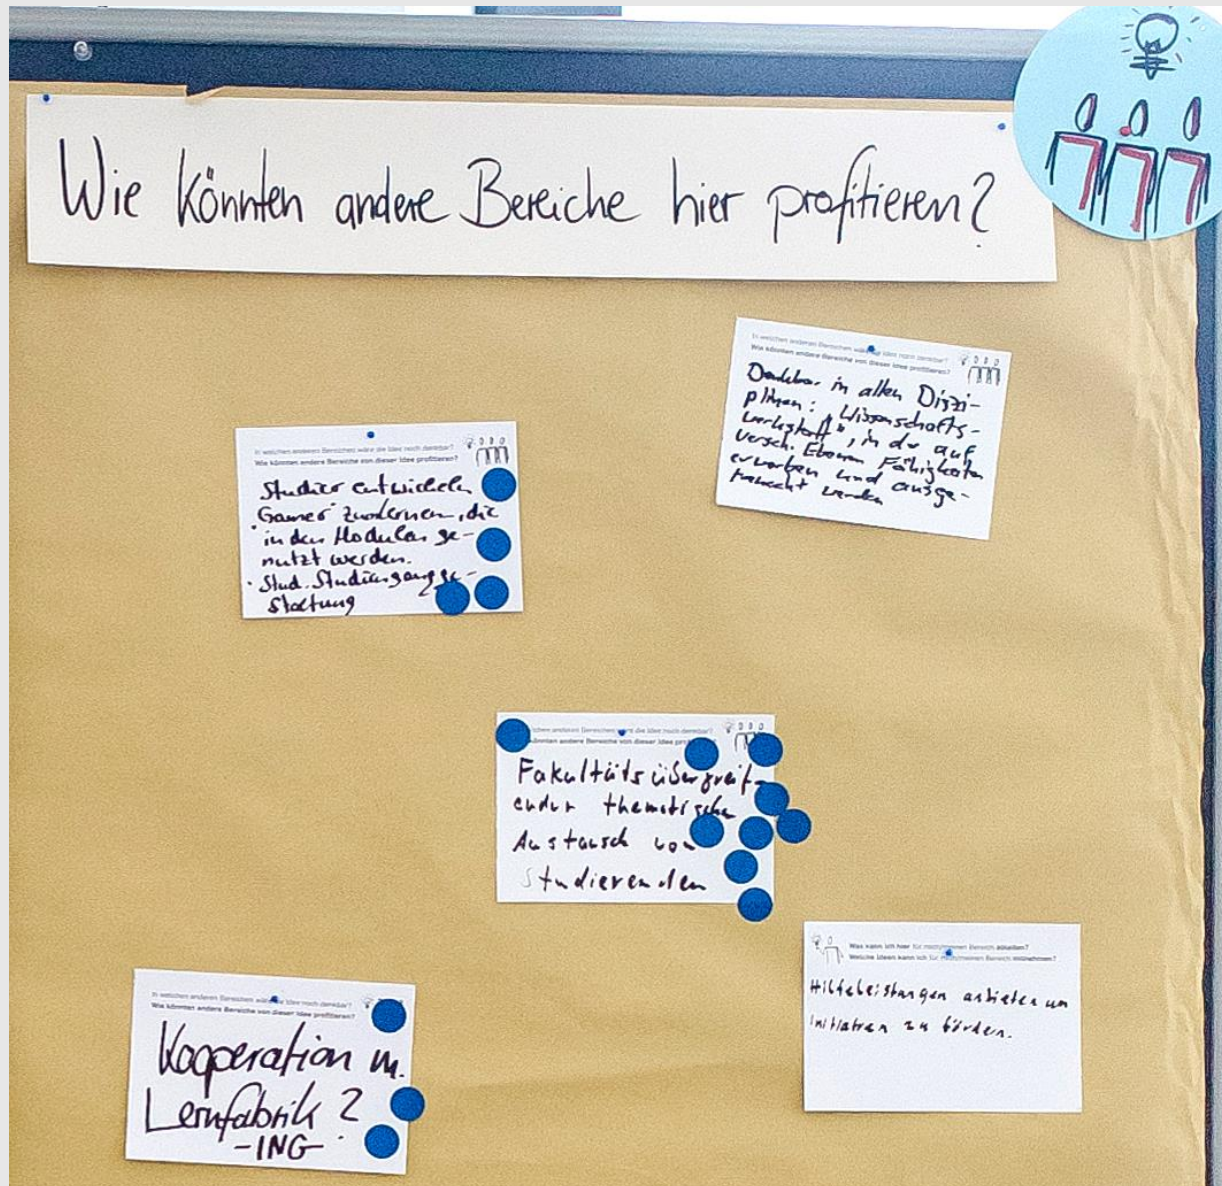 Wie könnten andere Bereiche hier profitieren?
In welchen anderen Bereichen wäre die Idee noch denkbar?
Wie könnten andere Bereiche von dieser Idee profitieren?
Denkbar in allen Diszi-
plinen: "Wissenschafts-
werkstatt", in der auf
versch. Ebenen Fähigkeiten
erworben und ausge-
tauscht werden
In welchen anderen Bereichen wäre die Idee noch denkbar?
Wie könnten andere Bereiche von dieser Idee profitieren?
Studies entwickeln
"Games" zum Lernen, die
in den Modulen ge-
nutzt werden.
· Stud. Studiengangge-
staltung
anderen Bereichen wäre die Idee noch denkbar?
könnten andere Bereiche von dieser Idee
Fakultätsübergreif-
ender thematischer
Austausch von
Studierenden
Was kann ich hier für mich/meinen Bereich ableiten?
Welche Ideen kann ich für mich/meinen Bereich mitnehmen?
Hilfeleistungen anbieten um
Initiativen zu fördern.
In welchen anderen Bereichen wäre die Idee noch denkbar?
Wie könnten andere Bereiche von dieser Idee profitieren?
Kooperation m.
Lernfabrik?
-ING-